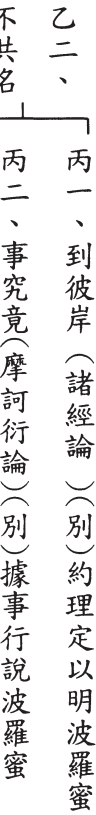 乙二、不共名
丙一、到彼岸（諸經論）（別）約理定以明波羅蜜
丙二、事究竟（摩訶衍論）（別）據事行說波羅蜜